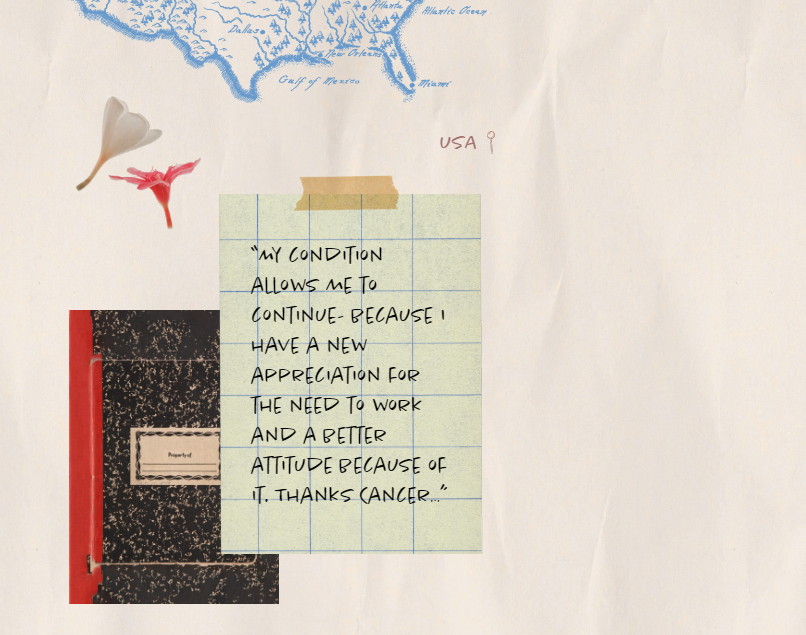 Atlanta
Atlantic Ocean
Dallas
New Orleans
Gulf of Mexico
Miami
USA
"MY CONDITION
ALLOWS ME TO
CONTINUE- BECAUSE I
HAVE A NEW
APPRECIATION FOR
THE NEED TO WORK
AND A BETTER
ATTITUDE BECAUSE OF
IT. THANKS CANCER..."
Property of